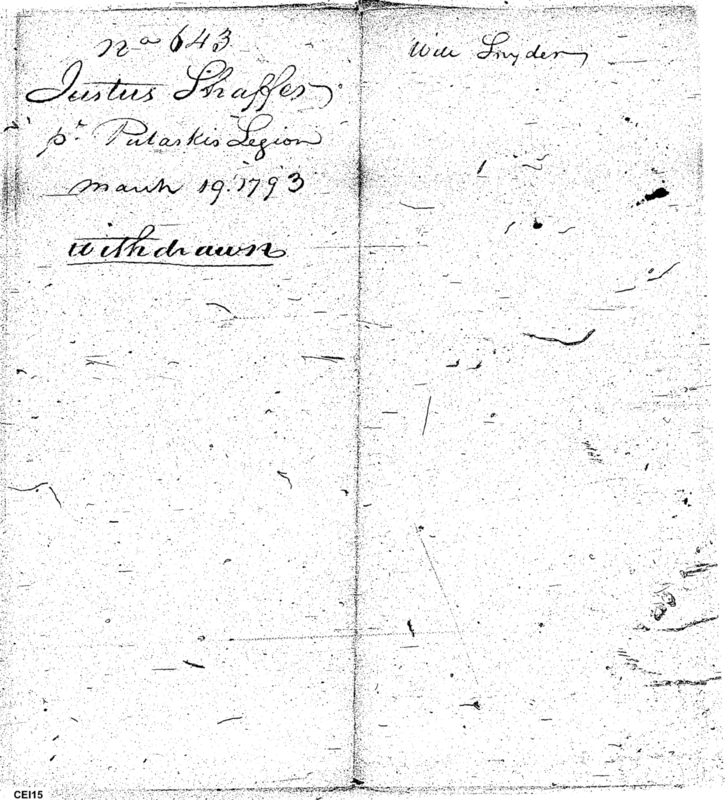 No 643
Justus Shaffer
pr. Pulaskis Legion
March 19. 1793
withdrawn
Will Snyder
CEI15